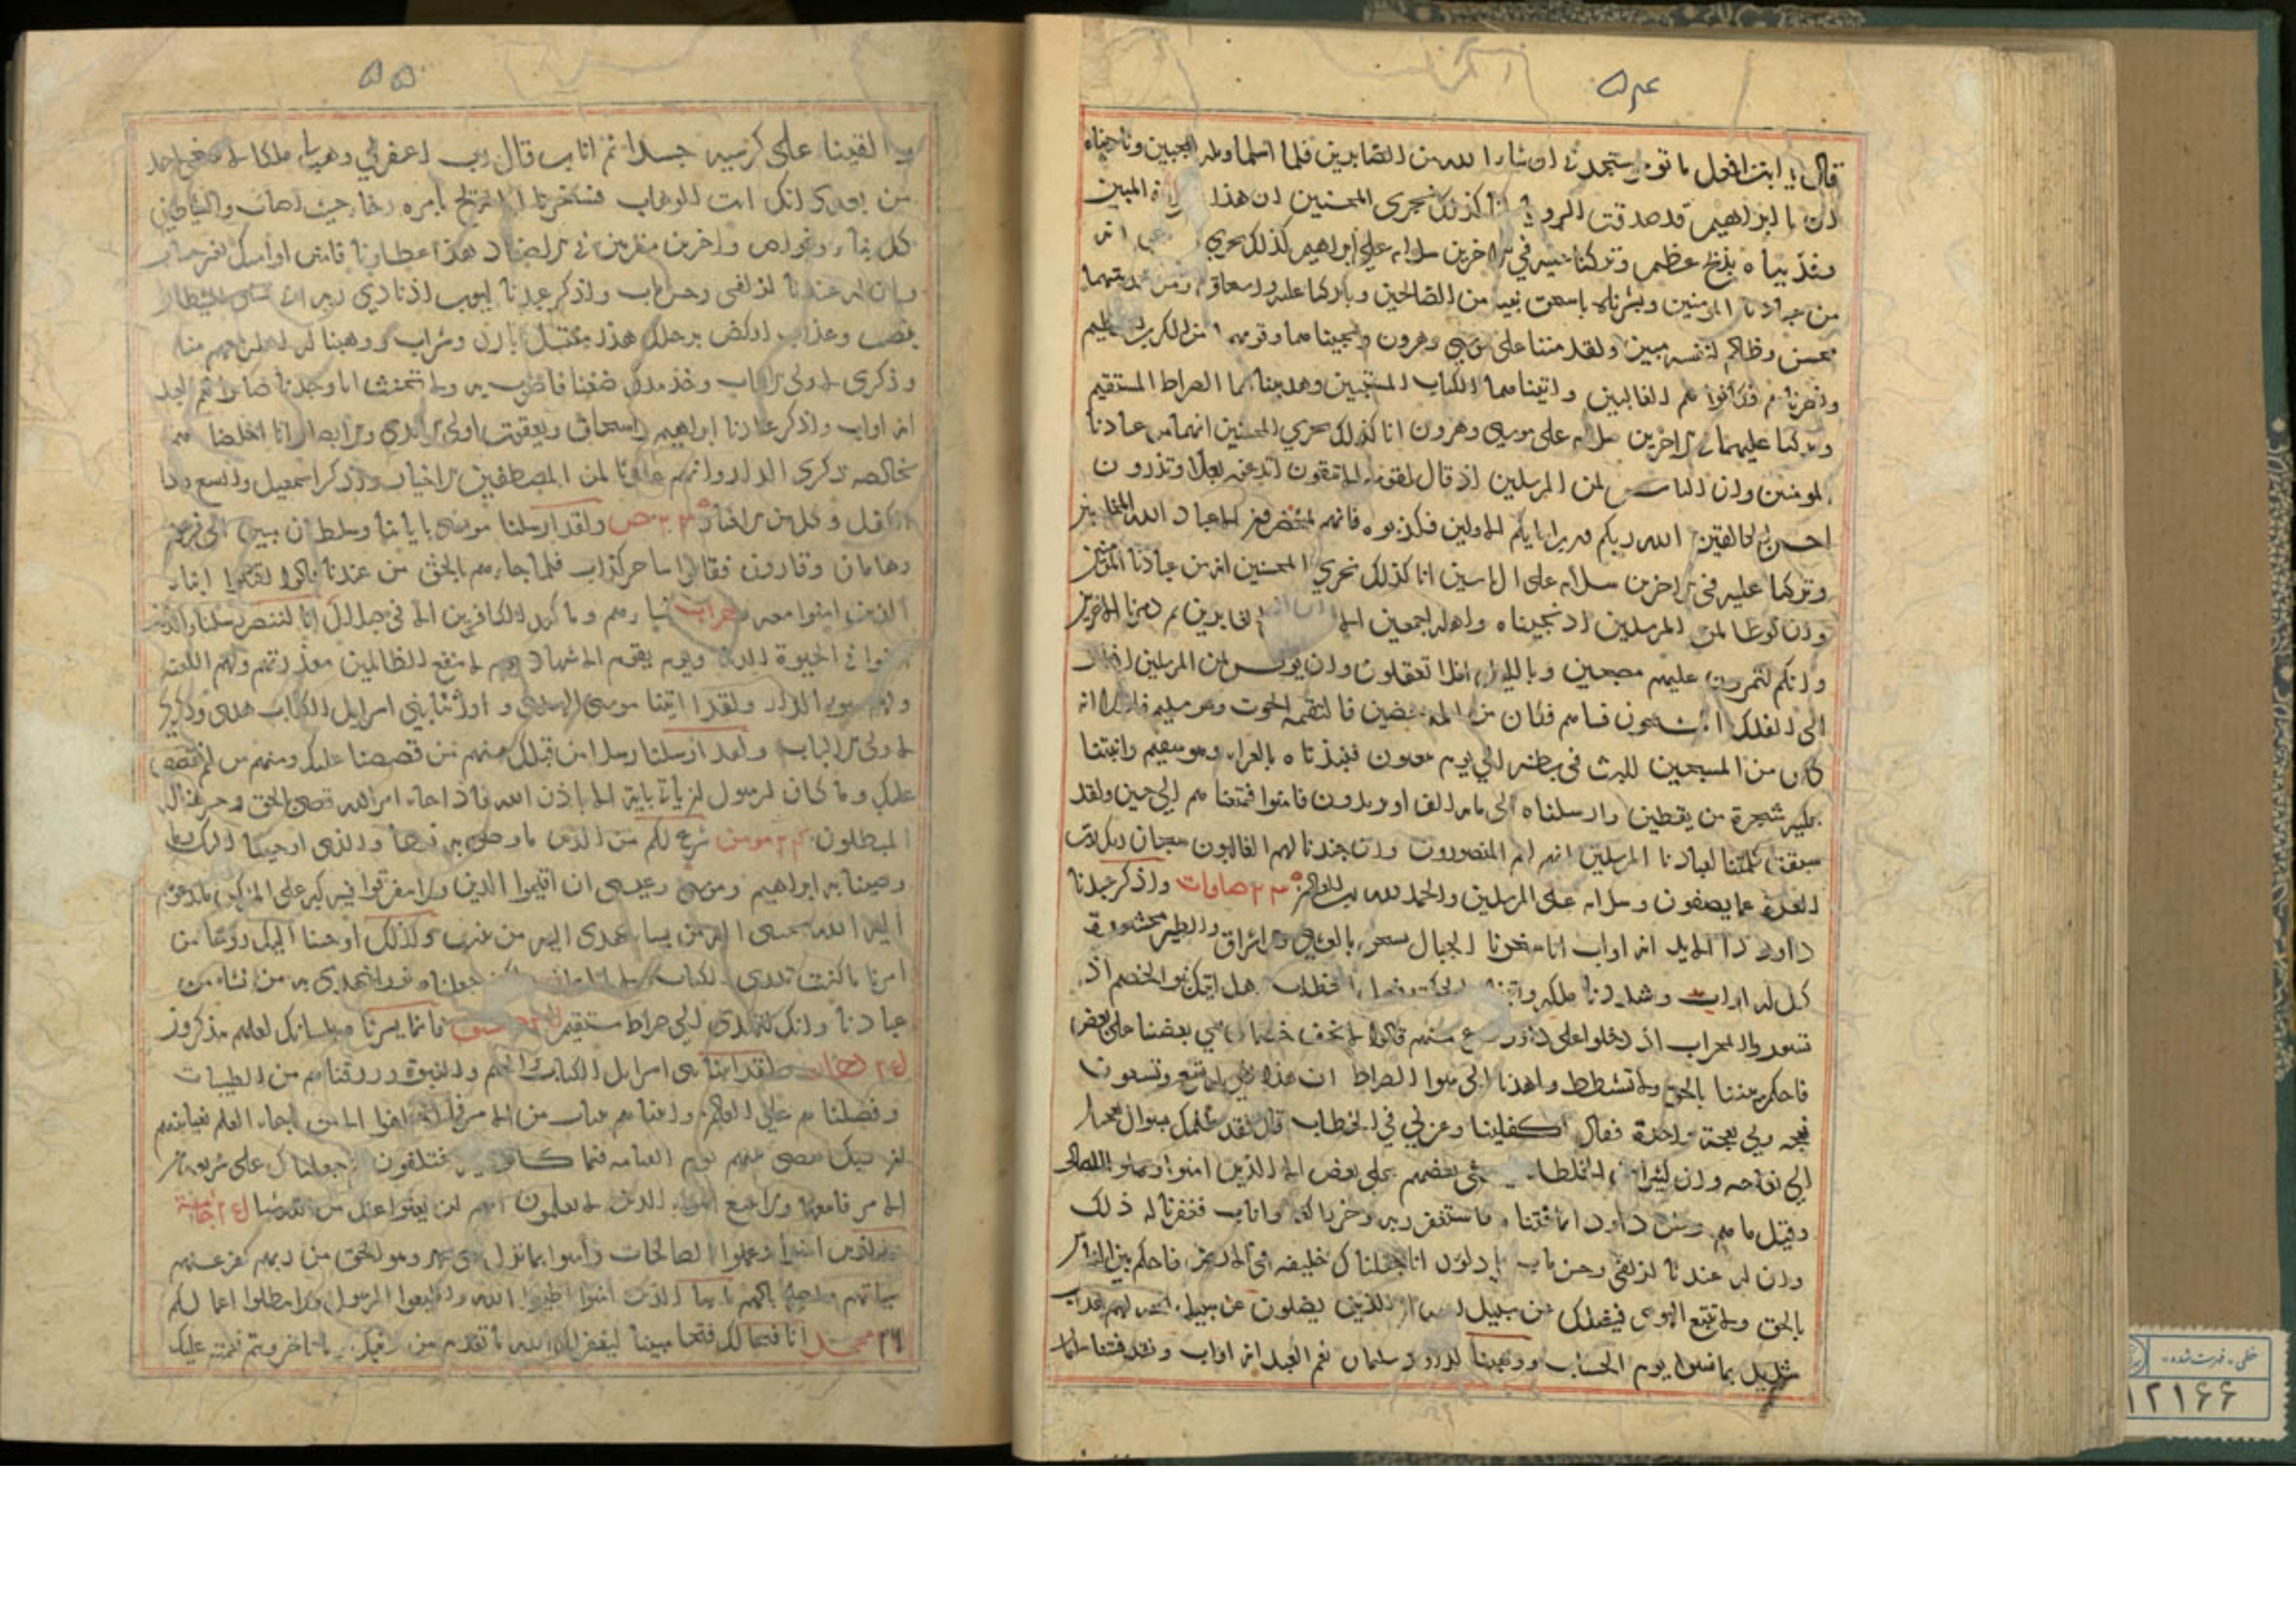 ۵۴
قال يا ابت افعل ما تؤمر ستجدنى ان شاء الله من الصابرين فلما اسلما وتله للجبين وناديناه
ان يا ابراهيم قد صدقت الرويا انا كذلك نجزى المحسنين ان هذا المبين
وفديناه بذبح عظيم وتركنا عليه في الاخرين سلام على ابراهيم كذلك نجزي انه
من عبادنا المومنين وبشرناه باسحق نبيا من الصالحين وباركنا عليه وعلى اسحاق ومن ذريتهما
محسن وظالم لنفسه مبين ولقد مننا على موسى وهرون ونجيناهما وقومهما من الكرب العظيم
ونصرناهم فكانوا هم الغالبين واتيناهما الكتاب المستبين وهديناهما الصراط المستقيم
وتركنا عليهما في الاخرين سلام على موسى وهرون انا كذلك نجزي المحسنين انهما من عبادنا
المومنين وان الياس لمن المرسلين اذ قال لقومه الا تتقون اتدعون بعلا وتذرون
احسن الخالقين الله ربكم ورب ابائكم الاولين فكذبوه فانهم لمحضرون الا عباد الله المخلصين
وتركنا عليه في الاخرين سلام على ال ياسين انا كذلك نجزي المحسنين انه من عبادنا المؤمنين
وان لوطا لمن المرسلين اذ نجيناه واهله اجمعين الا الغابرين ثم دمرنا الاخرين
وانكم لتمرون عليهم مصبحين وبالليل افلا تعقلون وان يونس لمن المرسلين اذ ابق
الى الفلك المشحون فساهم فكان من المدحضين فالتقمه الحوت وهو مليم فلولا انه
كان من المسبحين للبث في بطنه الي يوم يبعثون فنبذناه بالعراء وهو سقيم وانبتنا
عليه شجرة من يقطين وارسلناه الى مائه الف او يزيدون فامنوا فمتعناهم الى حين ولقد
سبقت كلمتنا لعبادنا المرسلين انهم لهم المنصورون وان جندنا لهم الغالبون سبحان ربك رب
العزة عما يصفون وسلام على المرسلين والحمد لله رب العالمين ۲۳ صافات واذكر عبدنا
داود ذا الايد انه اواب انا سخرنا الجبال معه يسبحن بالعشي والاشراق والطير محشورة
كل له اواب وشددنا ملكه واتيناه الحكمة وفصل الخطاب هل اتيك نبؤ الخصم اذ
تسوروا المحراب اذ دخلوا على داود ففزع منهم قالوا لا تخف خصمان بغي بعضنا على بعض
فاحكم بيننا بالحق ولا تشطط واهدنا الى سوا الصراط ان هذا اخي له تسع وتسعون
نعجه ولي نعجة واحدة فقال اكفلنيها وعزني في الخطاب قال لقد ظلمك بسوال نعجتك
الى نعاجه وان كثيرا من الخلطاء ليبغي بعضهم على بعض الا الذين امنوا وعملوا الصالحات
وقليل ما هم وظن داود انما فتناه فاستغفر ربه وخر راكعا واناب فغفرنا له ذلك
وان له عندنا لزلفى وحسن ماب يا داود انا جعلناك خليفه في الارض فاحكم بين الناس
بالحق ولا تتبع الهوى فيضلك عن سبيل الله ان الذين يضلون عن سبيل الله لهم عذاب
شديد بما نسوا يوم الحساب ووهبنا لداود سليمان نعم العبد انه اواب ولقد فتنا سليمان
۵۵
والقينا على كرسيه جسدا ثم اناب قال رب اغفر لي وهب لي ملكا لا ينبغي لاحد
من بعدى انك انت الوهاب فسخرنا له الريح بامره رخاء حيث اصاب والشياطين
كل بناء وغواص واخرين مقرنين في الاصفاد هذا عطاؤنا فامنن او امسك بغير حساب
وان له عندنا لزلفى وحسن ماب واذكر عبدنا ايوب اذ نادي ربه انى مسني الشيطان
بنصب وعذاب اركض برجلك هذا مغتسل بارد وشراب ووهبنا له اهله رحمه منا
وذكرى لاولى الالباب وخذ بيدك ضغثا فاضرب به ولا تحنث انا وجدناه صابرا نعم العبد
انه اواب واذكر عبادنا ابراهيم واسحاق ويعقوب اولى الايدي والابصار انا اخلصناهم
بخالصه ذكرى الدار وانهم عندنا لمن المصطفين الاخيار واذكر اسمعيل واليسع وذا
الكفل وكل من الاخيار ۲۳ ص ولقد ارسلنا موسى باياتنا وسلطان مبين الى فرعون
وهامان وقارون فقالوا ساحر كذاب فلما جاءهم بالحق من عندنا قالوا اقتلوا ابناء
الذين امنوا معه نساءهم وما كيد الكافرين الا في ضلال انا لننصر رسلنا والذين
امنوا في الحيوة الدنيا ويوم يقوم الاشهاد يوم لا ينفع الظالمين معذرتهم ولهم اللعنه
ولهم سوء الدار ولقد اتينا موسى الهدى و اورثنا بني اسرايل الكتاب هدى وذكرى
لاولى الالباب ولقد ارسلنا رسلا من قبلك منهم من قصصنا عليك ومنهم من لم نقصص
عليك وما كان لرسول ان يأتي باية الا باذن الله فاذا جاء امر الله قضى بالحق وخسر هنالك
المبطلون مومن شرع لكم من الدين ما وصى به نوحا والذى اوحينا اليك وما
وصينا به ابراهيم وموسى وعيسى ان اقيموا الدين ولا تتفرقوا فيه كبر على المشركين ما تدعوهم
اليه الله يجتبى اليه من يشاء ويهدى اليه من ينيب وكذلك اوحينا اليك روحا من
امرنا ما كنت تدرى ما الكتاب ولا الايمان ولكن جعلناه نورا نهدى به من نشاء من
عبادنا وانك لتهدى الى صراط مستقيم فانما يسرناه بلسانك لعلهم يتذكرون
دخان ولقد اتينا بنى اسرايل الكتاب والحكم والنبوة ورزقناهم من الطيبات
وفضلناهم على العالمين واتيناهم بينات من الامر فما اختلفوا الا من بعد ما جاءهم العلم بغيا بينهم
ان ربك يقضى بينهم يوم القيامه فيما كانوا فيه يختلفون ثم جعلناك على شريعة من
الامر فاتبعها ولا تتبع اهواء الذين لا يعلمون انهم لن يغنوا عنك من الله شيا جاثية
والذين امنوا وعملوا الصالحات وامنوا بما نزل على محمد وهو الحق من ربهم كفر عنهم
سيئاتهم واصلح بالهم يا ايها الذين امنوا اطيعوا الله واطيعوا الرسول ولا تبطلوا اعمالكم
۲۶ محمد انا فتحنا لك فتحا مبينا ليغفر لك الله ما تقدم من ذنبك وما تاخر ويتم نعمته عليك
خطی - فهرست شده
۱۲۱۶۶